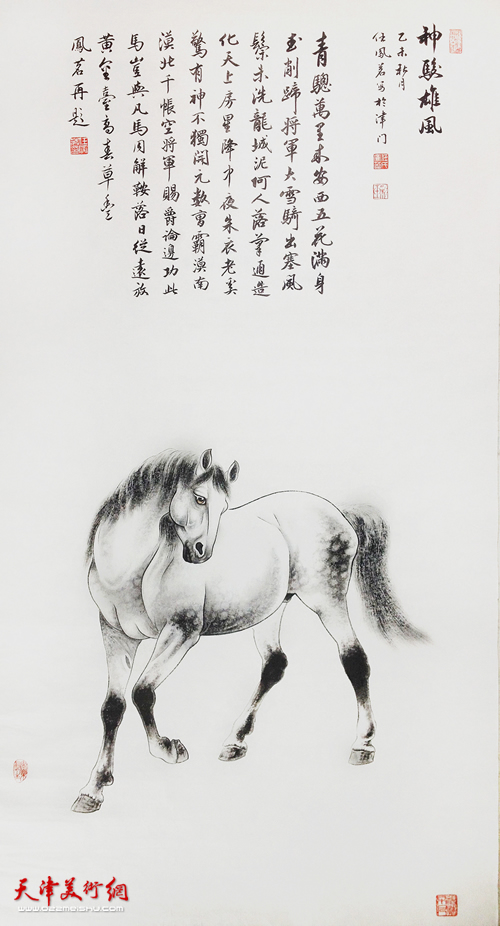 神駿雄風
乙未秋月
任鳳茗写於津门
青驄萬里来安西五花滿身
玉削蹄將軍大雪騎出塞風
鬃未洗龍城泥何人落筆通造
化天上房星降中夜朱衣老奚
驚有神不獨開元数曹霸漠南
漠北千帳空將軍賜爵論邊功此
馬豈與凡馬同解鞍落日從遠放
黄金臺高春草
鳳茗再题
天津美術網
www.022meishu.com